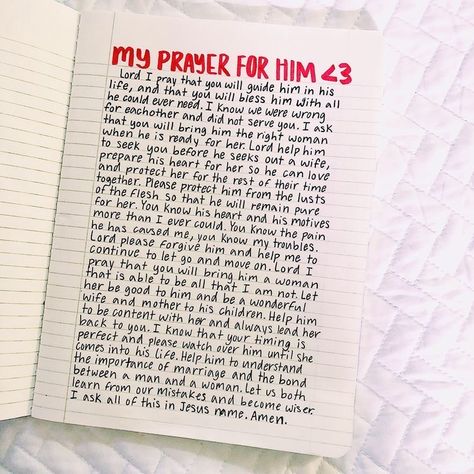 MY PRAYER FOR HIM <3
Lord I pray that you will guide him in his
life, and that you will bless him with all
he could ever need. I know we were wrong
for eachother and did not serve you. I ask
that you will bring him the right woman
when he is ready for her. Lord help him
to seek you before he seeks out a wife,
prepare his heart for her so he can love
and protect her for the rest of their time
together. Please protect him from the lusts
of the flesh so that he will remain pure
for her. You know his heart and his motives
more than I ever could. You know the pain
he has caused me, you know my troubles.
Lord please forgive him and help me to
continue to let go and move on. Lord I
pray that you will bring him a woman
that is able to be all that I am not. Let
her be good to him and be a wonderful
wife and mother to his children. Help him
to be content with her and always lead her
back to you. I know that your timing is
perfect and please watch over him until she
comes into his life. Help him to understand
the importance of marriage and the bond
between a man and a woman. Let us both
learn from our mistakes and become wiser.
I ask all of this in Jesus name. Amen.